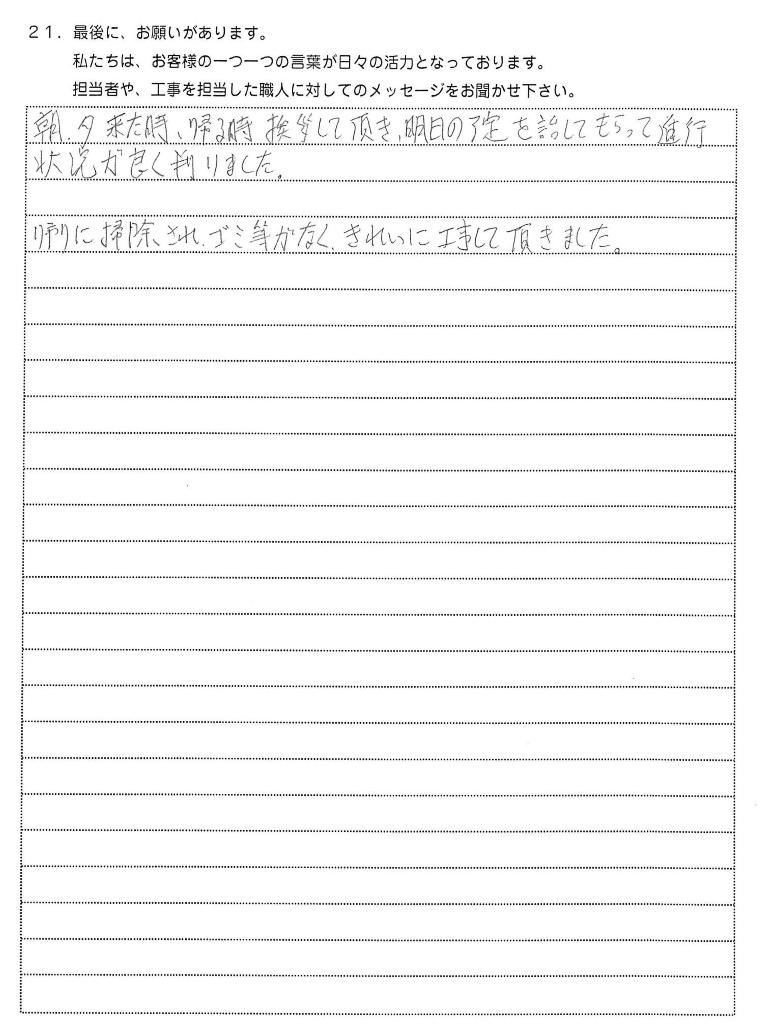 21. 最後に、お願いがあります。
私たちは、お客様の一つ一つの言葉が日々の活力となっております。
担当者や、工事を担当した職人に対してのメッセージをお聞かせ下さい。
朝、夕 来た時、帰る時 挨拶して頂き、明日の予定を話してもらって進行
状況が良く判りました。
帰りに掃除され、ゴミ等がなく、きれいに工事して頂きました。